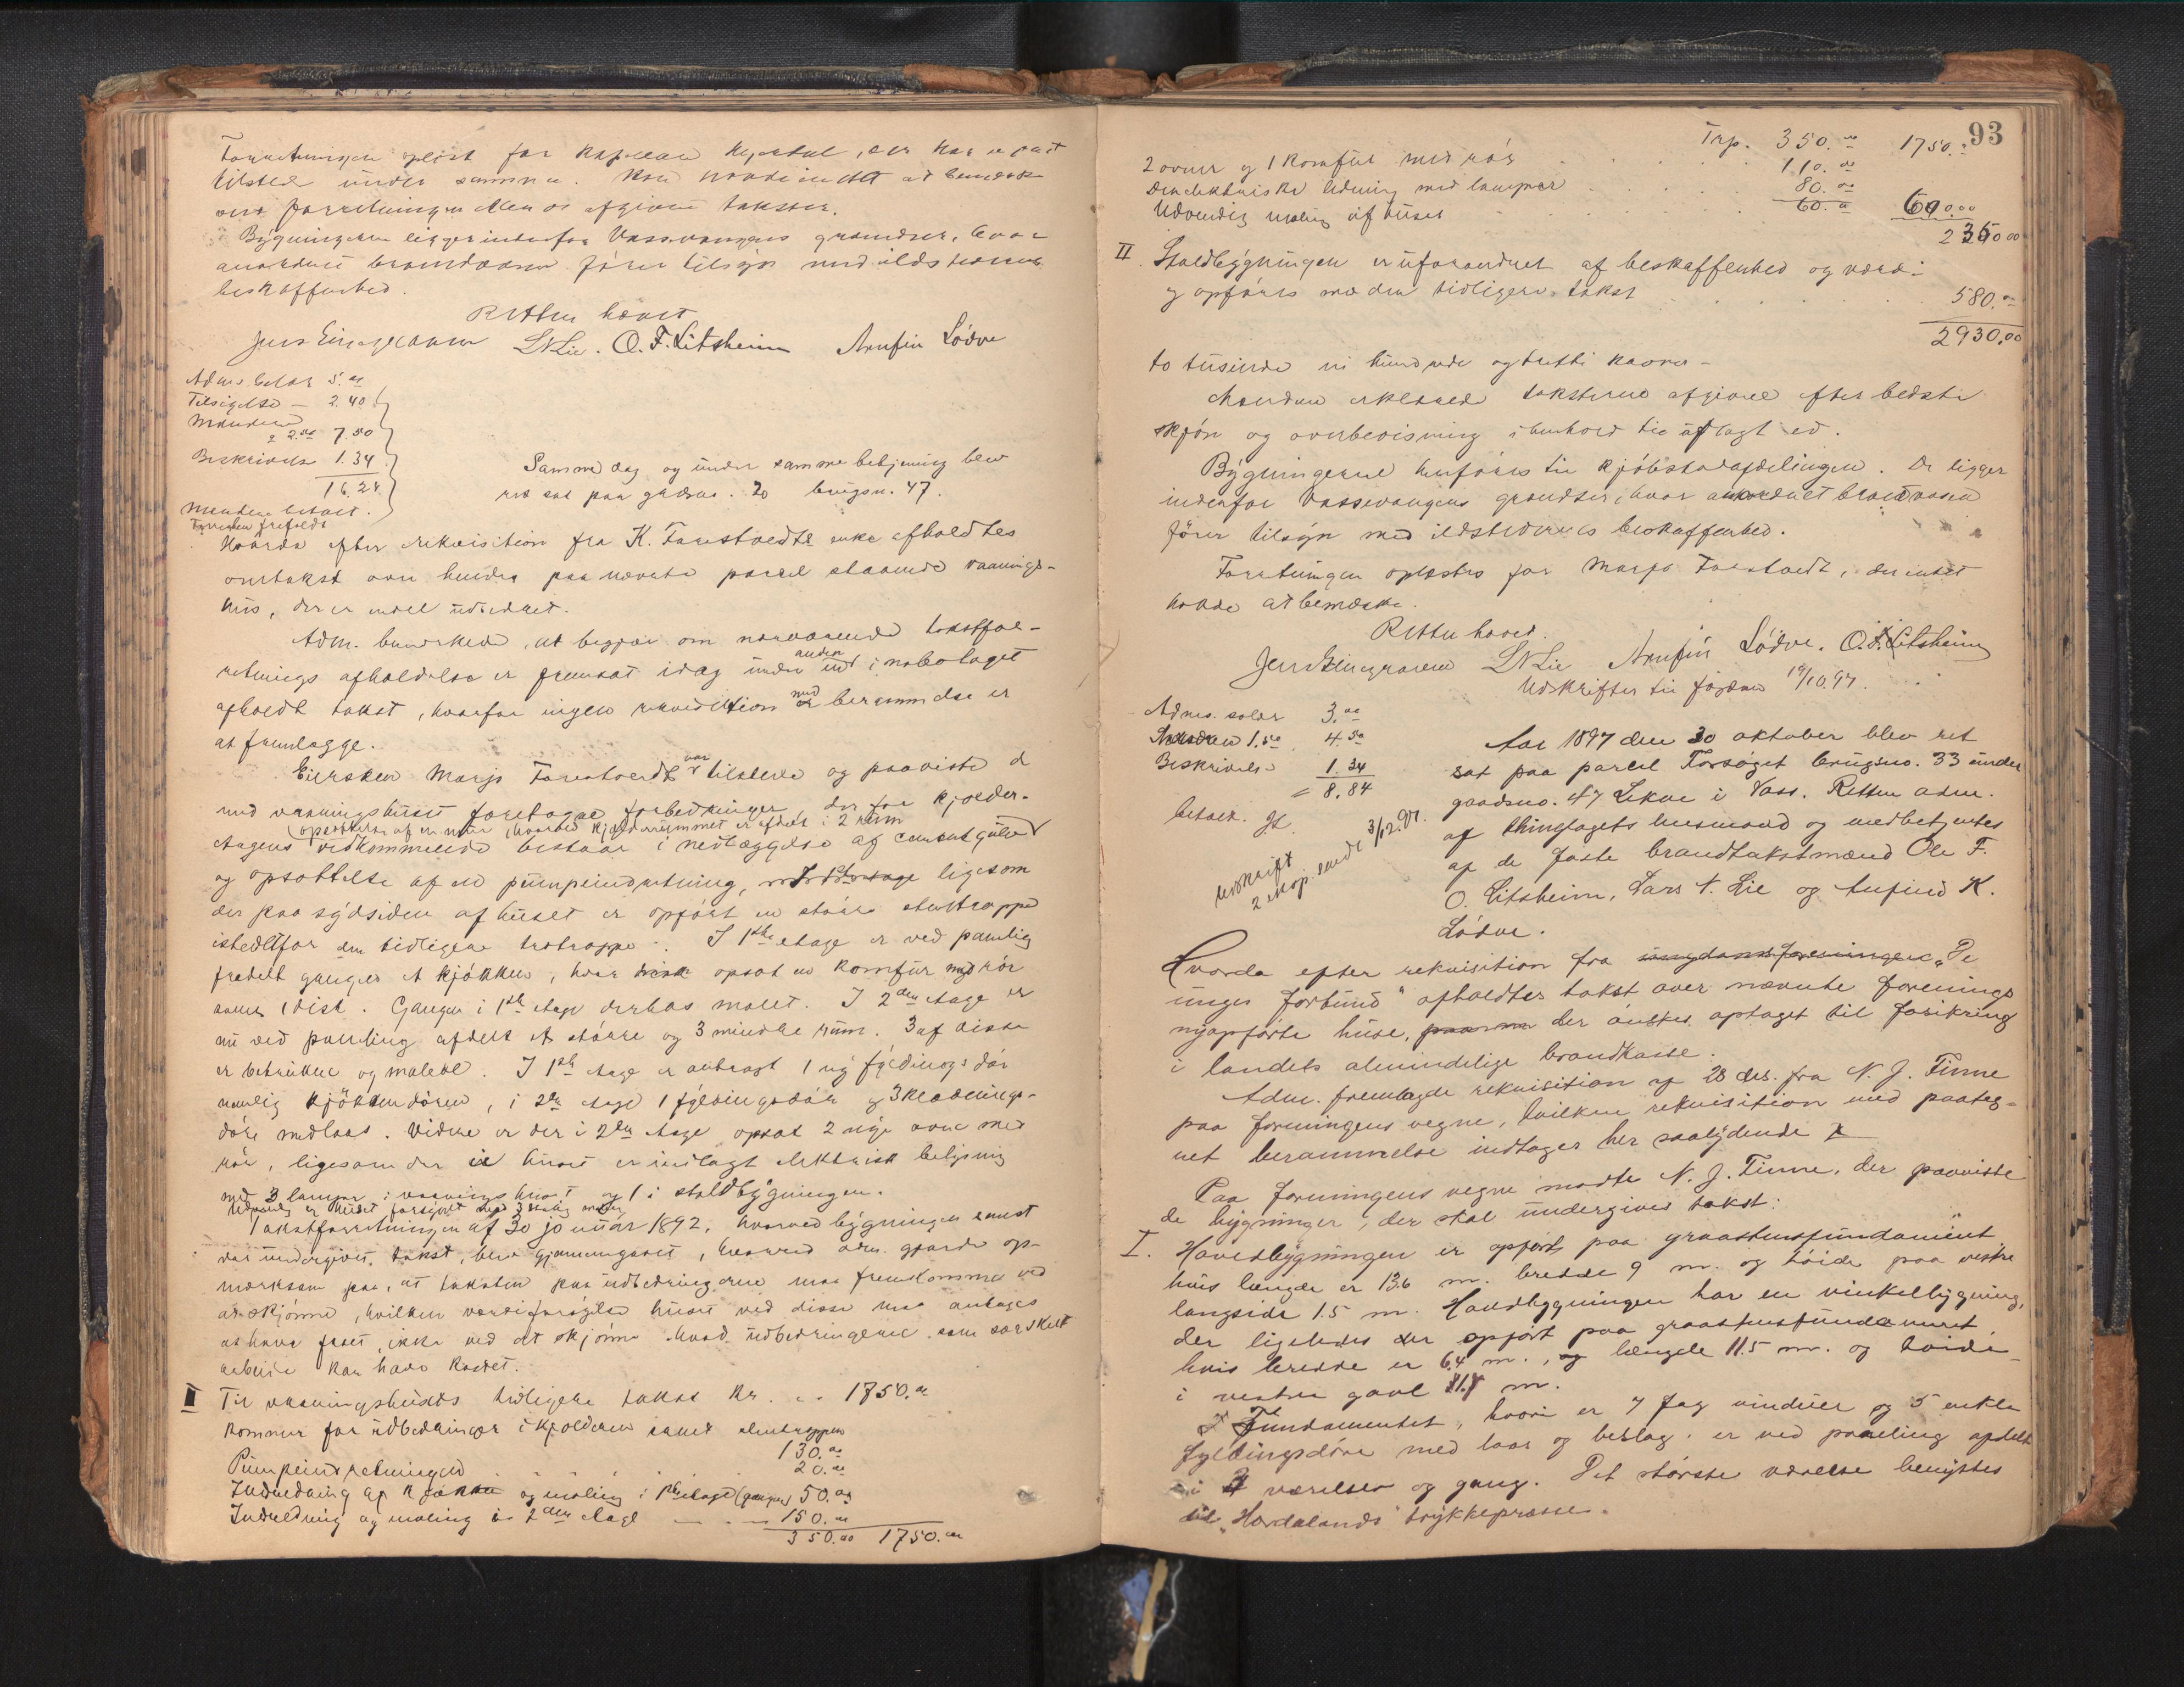 Forretningen oplæst for kaptein Hjortdal, der har været
tilstede under samme. Han havde intet at bemærke
ved forretningen eller de afgivne takster.
Bygningerne ligger indenfor Vossevangens grændser, hvor
anordnet brandvæsen fører tilsyn med ildstedernes
beskaffenhed.
Retten hævet
Jens Gjerager LNLie. O. F. Litsheim Arnfin Lødve
Adms. salær 5.00
Tilsigelse — 2.40
Mændene
a 2.50 7.50
Beskrivelse 1.34
16.24
Mændene betalt.
Samme dag og under samme betjening blev
ret sat paa gaardsno. 20 brugsn. 47.
Hvorda efter rekvisition fra K. Farestvedts enke afholdtes
omtakst over hendes paa nævnte parcel staaende vaanings-
hus, der er endel udbedret.
Adm. bemærkede, at begjær om nærværende takstfor-
retnings afholdelse er fremsat idag under anden i nabolaget
afholdt takst, hvorfor ingen rekvisition med berammelse er
at fremlægge.
Eiersken Marjo Farestvedt var tilstede og paaviste de
med vaaningshuset foretagne forbedringer, der for kjælder-
(opsættelse af en mur, hvorved kjælderrummet er afdelt i 2 rum
etagens vedkommende bestaar i nedlæggelse af cementgulv
og opsættelse af en pumpeindretning, ligesom
der paa sydsiden af huset er opført en større stentrappe
istedetfor den tidligere trætrappe. I 1ste etage er ved paneling
fradelt gangen et kjøkken, hvor opsat en komfur med rør
Gangen i 1ste etage derhos malet. I 2den etage er
nu ved paneling afdelt et større og 3 mindre rum. 3 af disse
er betrukne og malede. I 1ste etage er anbragt 1 ny fyldingsdør
nemlig kjøkkendøren, i 2den etage 1 fyldingsdør og 3 klædnings-
døre med laas. Videre er der i 2den etage opsat 2 nye ovne med
rør, ligesom der i huset er indlagt elektrisk belysning
med 3 lamper i vaaningshuset og 1 i staldbygningen.
Udvendig er huset forsynet med 3 malinger
Takstforretningen af 30 januar 1892, hvorved bygningen senest
var undergivet takst, blev gjennemgaaet, hvorved adm. gjorde op-
mærksom paa, at taksten paa udbedringerne maa fremkomme ved
at skjønne, hvilken værdiforøgelse huset ved disse maa antages
at have faaet, ikke ved at skjønne hvad udbedringerne som særskilt
arbeide kan have kostet.
I Til vaaningshusets tidligere takst kr. .. 1750.00
kommer for udbedringer i kjælderen samt stentrappen
130.00
Pumpeindretningen 20.00
Indredning af kjøkken og maling i 1ste etage (gangen) 50.00
Indredning og maling i 2den etage — — 150.00
350.00 1750.00
93
Trp. 350.00 1750.00
2 ovner og 1 komfur med rør 110.00
Den elektriske ledning med lamper 80.00
Udvendig maling af huset 60.00 600.00
2350.00
II. Staldbygningen er uforandret af beskaffenhed og værdi
og opføres med den tidligere takst 580.00
2930.00
to tusinde ni hundrede og tretti kroner —
Mændene erklærede taksterne afgivne efter bedste
skjøn og overbevisning i henhold til aflagt ed.
Bygningerne henføres til kjøbstadafdelingen. De ligger
indenfor Vossevangens grændser, hvor anordnet brandvæsen
fører tilsyn med ildstedernes beskaffenhed.
Forretningen oplæstes for Marjo Farestvedt, der intet
havde at bemærke.
Retten hævet.
Jens Gjerager LNLie Arnfin Lødve. O. F. Litsheim
Udskrifter til fogden 19/10.97.
Adms. salær 3.00
Mændene 1.50 4.50
Beskrivelse 1.34
= 8.84
betalt.
Udskrift
2 expl. sendt 3/12.97.
Aar 1897 den 30 oktober blev ret
sat paa parcel Forsøget brugsno. 33 under
gaardsno. 47 Lekve i Voss. Retten adm.
af thinglagets lensmand og medbetjentes
af de faste brandtakstmænd Ole F.
O. Litsheim, Lars N. Lie og Anfind K.
Lødve.
Hvorda efter rekvisition fra ungdomsforeningen „De
unges forbund" afholdtes takst over nævnte forenings
nyopførte huse, der ønskes optaget til forsikring
i landets almindelige brandkasse.
Adm. fremlagde rekvisition af 28 ds. fra N. J. Finne
paa foreningens vegne, hvilken rekvisition med paateg-
net berammelse indtages her saalydende
Paa foreningens vegne mødte N. J. Finne, der paaviste
de bygninger, der skal undergives takst:
I. Hovedbygningen er opført paa graastensfundament,
hvis længde er 13.6 m. bredde 9 m. og høide paa vestre
langside 1.5 m. Hovedbygningen har en vinkelbygning,
der ligeledes er opført paa graastensfundament,
hvis bredde er 6.4 m., og længde 11.5 m. og høide
i vestre gavl 1.8 m.
I Fundamentet, hvori er 7 fag vinduer og 5 enkle
fyldingsdøre med laas og beslag, er ved paneling afdelt
i 4 værelser og gang. Det største værelse benyttes
til „Hordalands" trykkepresse.